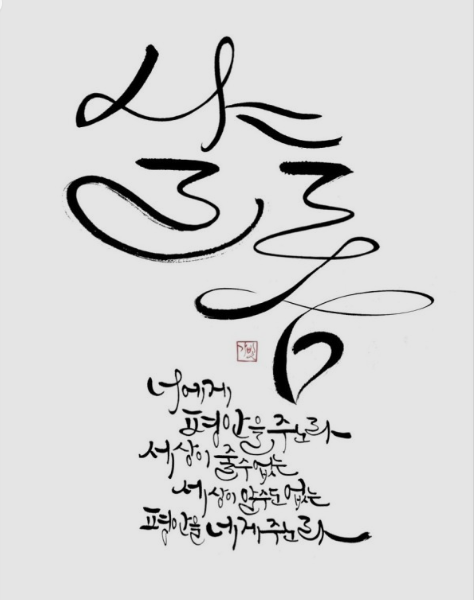 샬롬
너에게
평안을 주노라
세상이 줄 수 없는
세상이 알 수도 없는
평안을 네게 주노라